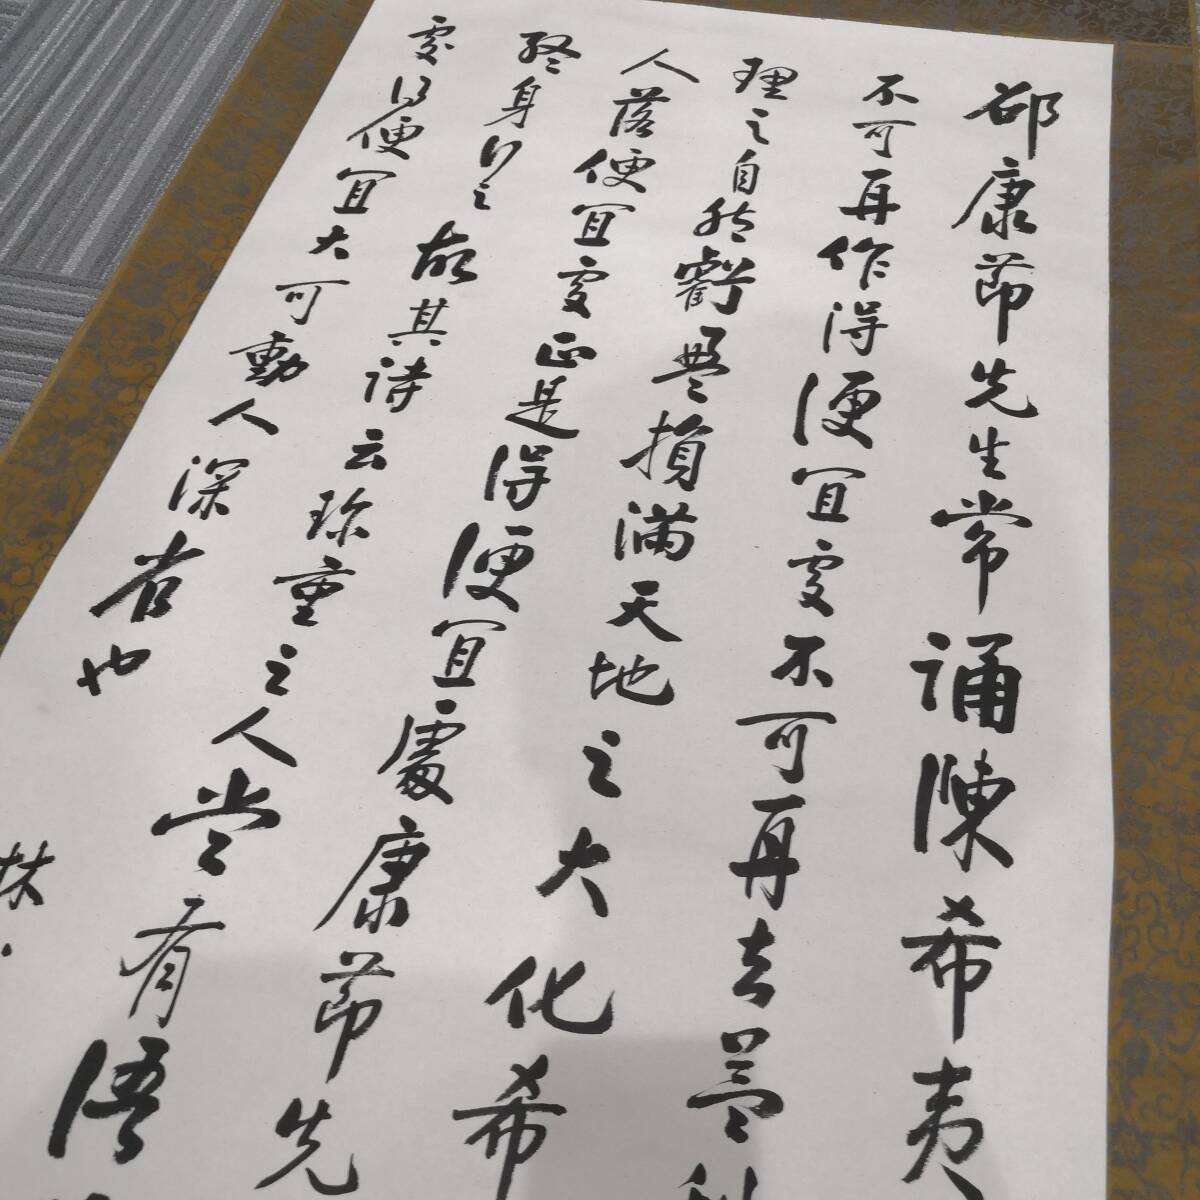 邵康節先生常誦陳希夷
不可再作得便宜處不可再去蓋
理之自然虧盈損滿天地之大化希
人落便宜處正是得便宜處康節先
終身行之故其詩云珍重至人嘗有悟
處得便宜大可動人深省也
扶